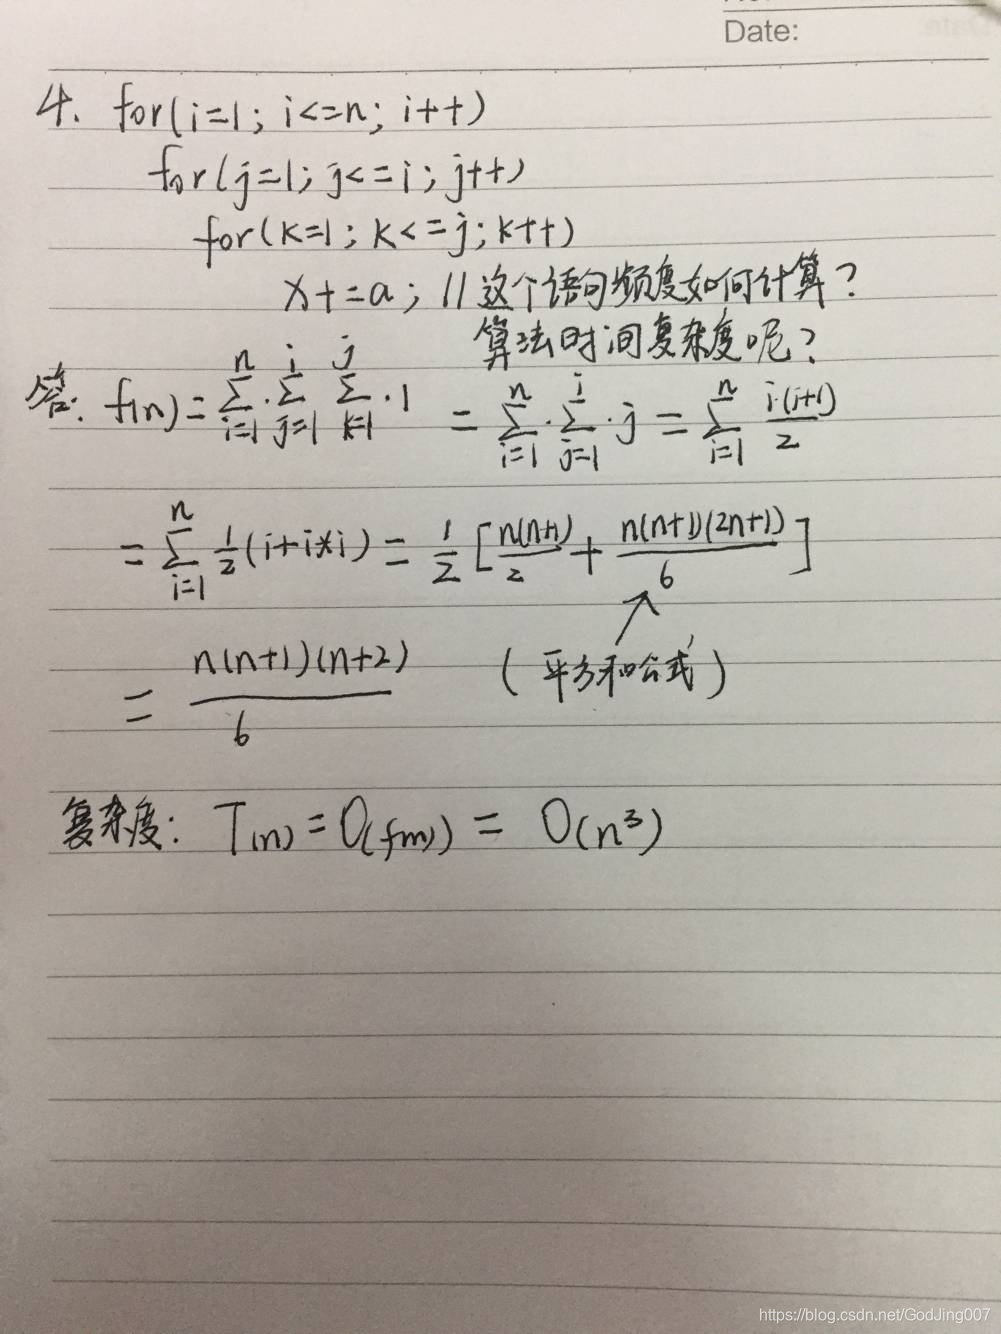 Date:
4. for(i=1; i<=n; i++)
for(j=1; j<=i; j++)
for(k=1; k<=j; k++)
x+=a; //这个语句频度如何计算?
算法时间复杂度呢?
答: f(n)=∑_{i=1}^{n}·∑_{j=1}^{i}∑_{k=1}^{j}·1 = ∑_{i=1}^{n}·∑_{j=1}^{i}·j = ∑_{i=1}^{n} i·(i+1)/2
= ∑_{i=1}^{n} 1/2(i+i*i) = 1/2[n(n+1)/2 + n(n+1)(2n+1)/6]
= n(n+1)(n+2)/6 (平方和公式)
复杂度: T(n)=O(f(n)) = O(n³)
https://blog.csdn.net/GodJing007